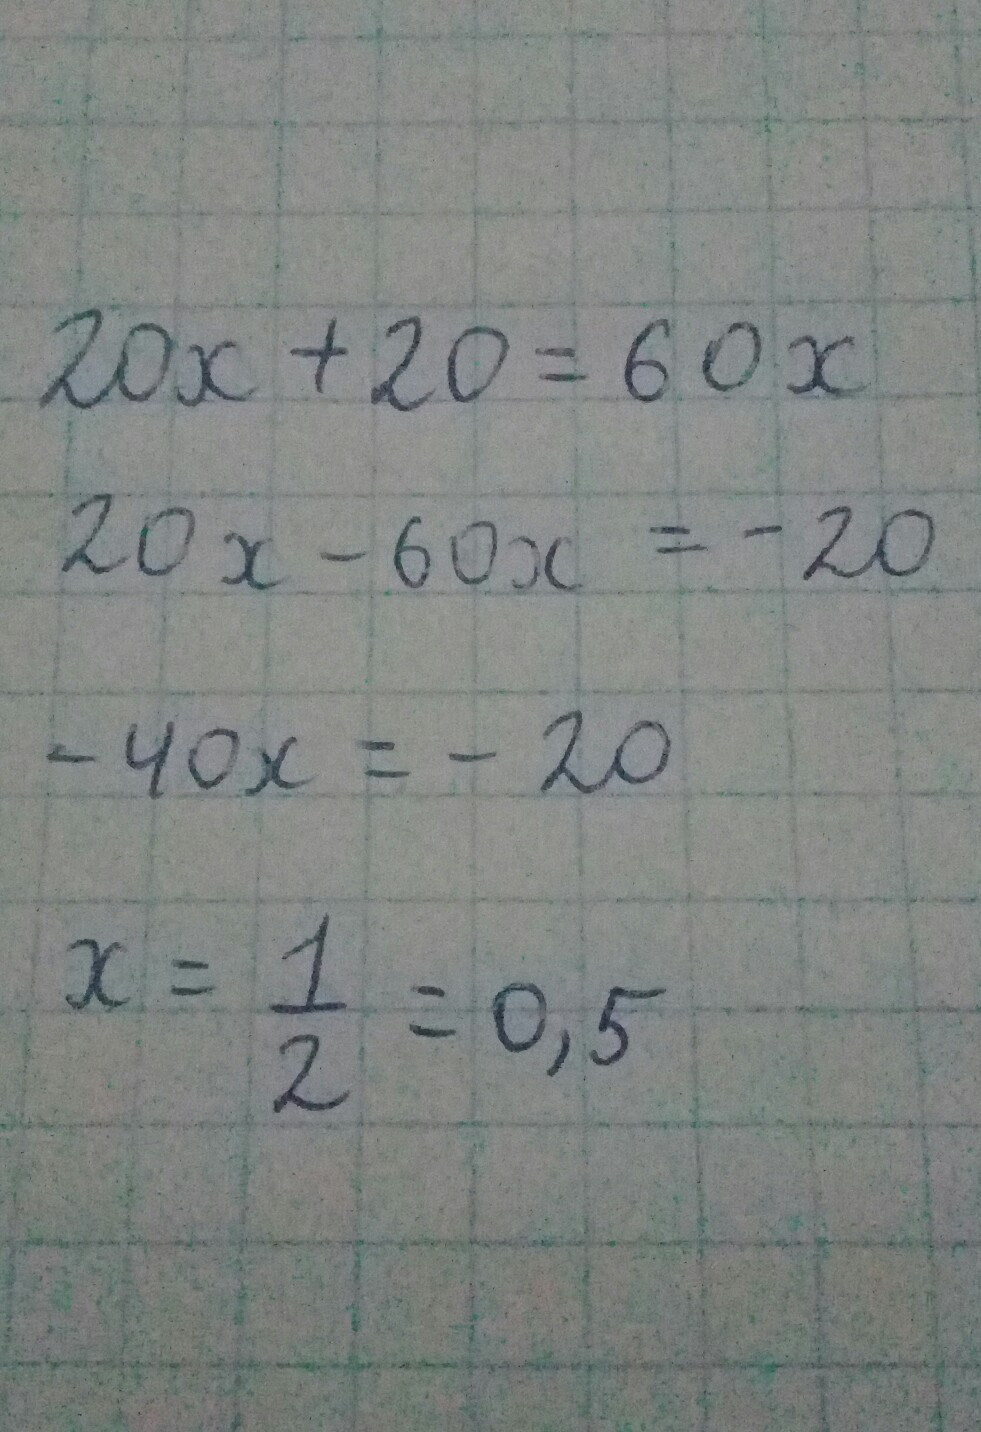 20x + 20 = 60x
20x - 60x = - 20
- 40x = - 20
x = 1/2 = 0,5